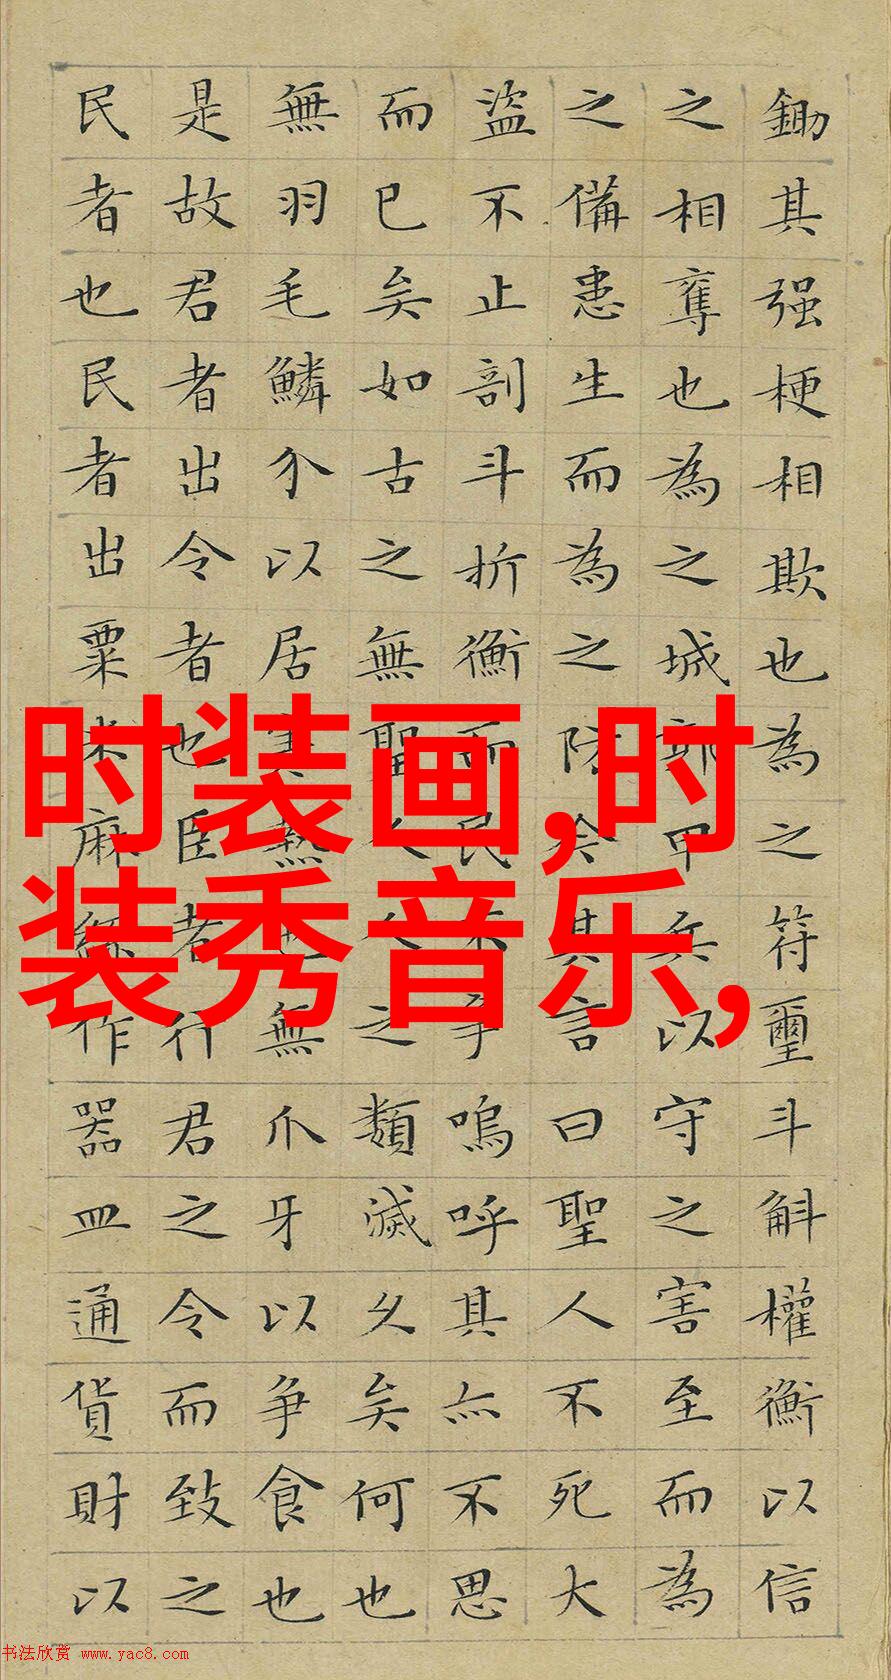 鋤其强梗相欺也為之符璽斗斛權衡以信
之相奪也為之城郭甲兵以守之害至而為
之備患生而為之防矣其言曰聖人不死大
盜不止剖斗折衡而民不争嗚呼其亦不思
而已矣如古之無聖人人之類滅久矣何也
無羽毛鱗介以居寒熱也無爪牙以争食也
是故君者出令者也臣者行君之令而致之
民者也民者出粟米麻絲作器皿通貨財以
时装画,时
装秀音乐,
书法欣赏 www.yac8.com